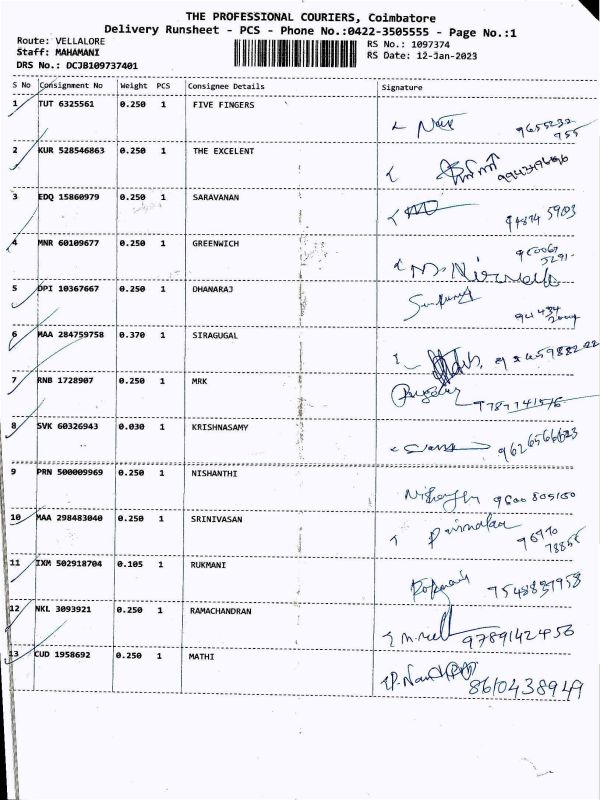 THE PROFESSIONAL COURIERS, Coimbatore
Delivery Runsheet - PCS - Phone No.:0422-3505555 - Page No.:1
Route: VELLALORE
Staff: MAHAMANI
DRS No.: DCJB109737401
RS No.: 1097374
RS Date: 12-Jan-2023
S No Consignment No Weight PCS Consignee Details Signature
1 TUT 6325561 0.250 1 FIVE FINGERS
9655232
955
2 KUR 528546863 0.250 1 THE EXCELENT
3 EDQ 15860979 0.250 1 SARAVANAN
4 MNR 60109677 0.250 1 GREENWICH
5 DPI 10367667 0.250 1 DHANARAJ
6 MAA 284759758 0.370 1 SIRAGUGAL
7 RNB 1728907 0.250 1 MRK
8 SVK 60326943 0.030 1 KRISHNASAMY
9626566623
9 PRN 500009969 0.250 1 NISHANTHI
9600 805100
10 MAA 298483040 0.250 1 SRINIVASAN
11 IXM 502918704 0.105 1 RUKMANI
7548837958
12 NKL 3093921 0.250 1 RAMACHANDRAN
9789142456
13 CUD 1958692 0.250 1 MATHI
8610438949